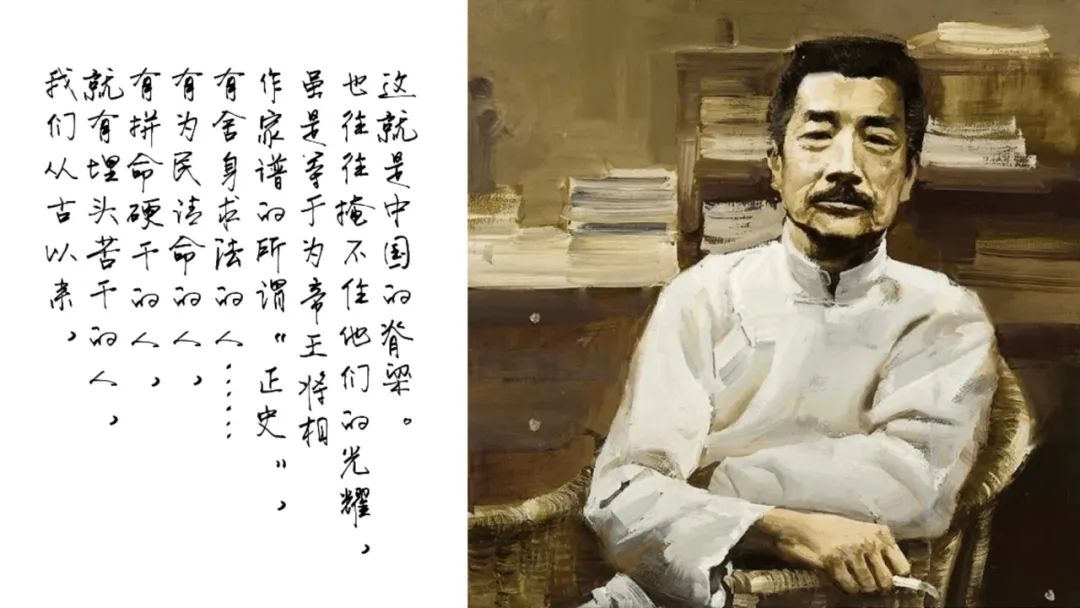 我们从古以来，
就有埋头苦干的人，
有拼命硬干的人，
有为民请命的人，
有舍身求法的人……
作家谱的所谓“正史”，
虽是等于为帝王将相
也往往掩不住他们的光耀，
这就是中国的脊梁。